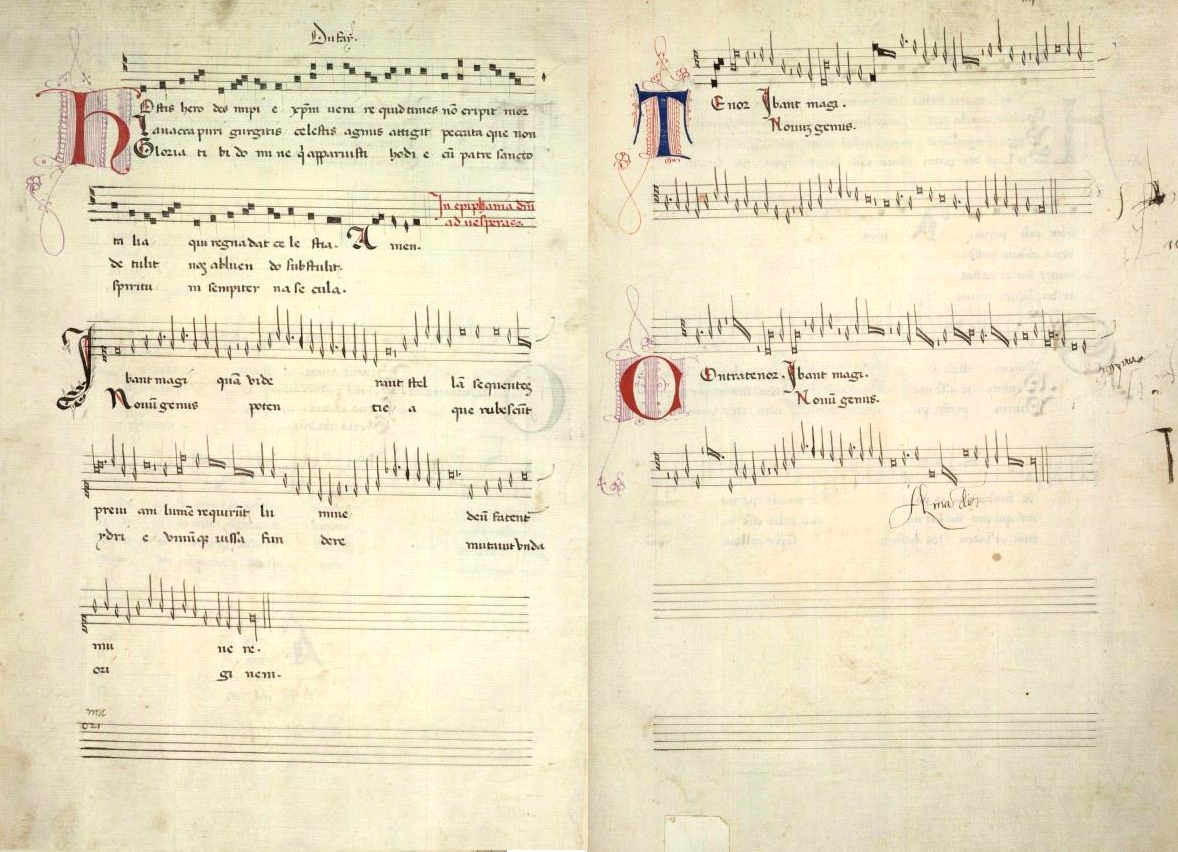 Dufay.
HOstis hero des impi e xpm ueni re quid times nō eripit mor
Lauacra puri gurgitis celestis agnus attigit peccata que non
Gloria ti bi do mi ne q̇ apparuisti hodi e cū patre sancto
In epiphania dm̄
ad uesperas.
ta lia qui regna dat ce le stia. A men.
de tulit nos abluen do substulit.
spiritu in sempiter na se cula.
Ibant magi quā vide rant stel lā sequentes
Nouū genus poten tie a que rubescūt
preui am lumē requirūt lu mine deū fatent
ydri e vinūq; iussa fun dere mutauit vnda
mu ne re.
ori gi nem.
mu
ori
TEnor Ibant magi.
Nouū genus.
COntratenor. Ibant magi.
Nouū genus.